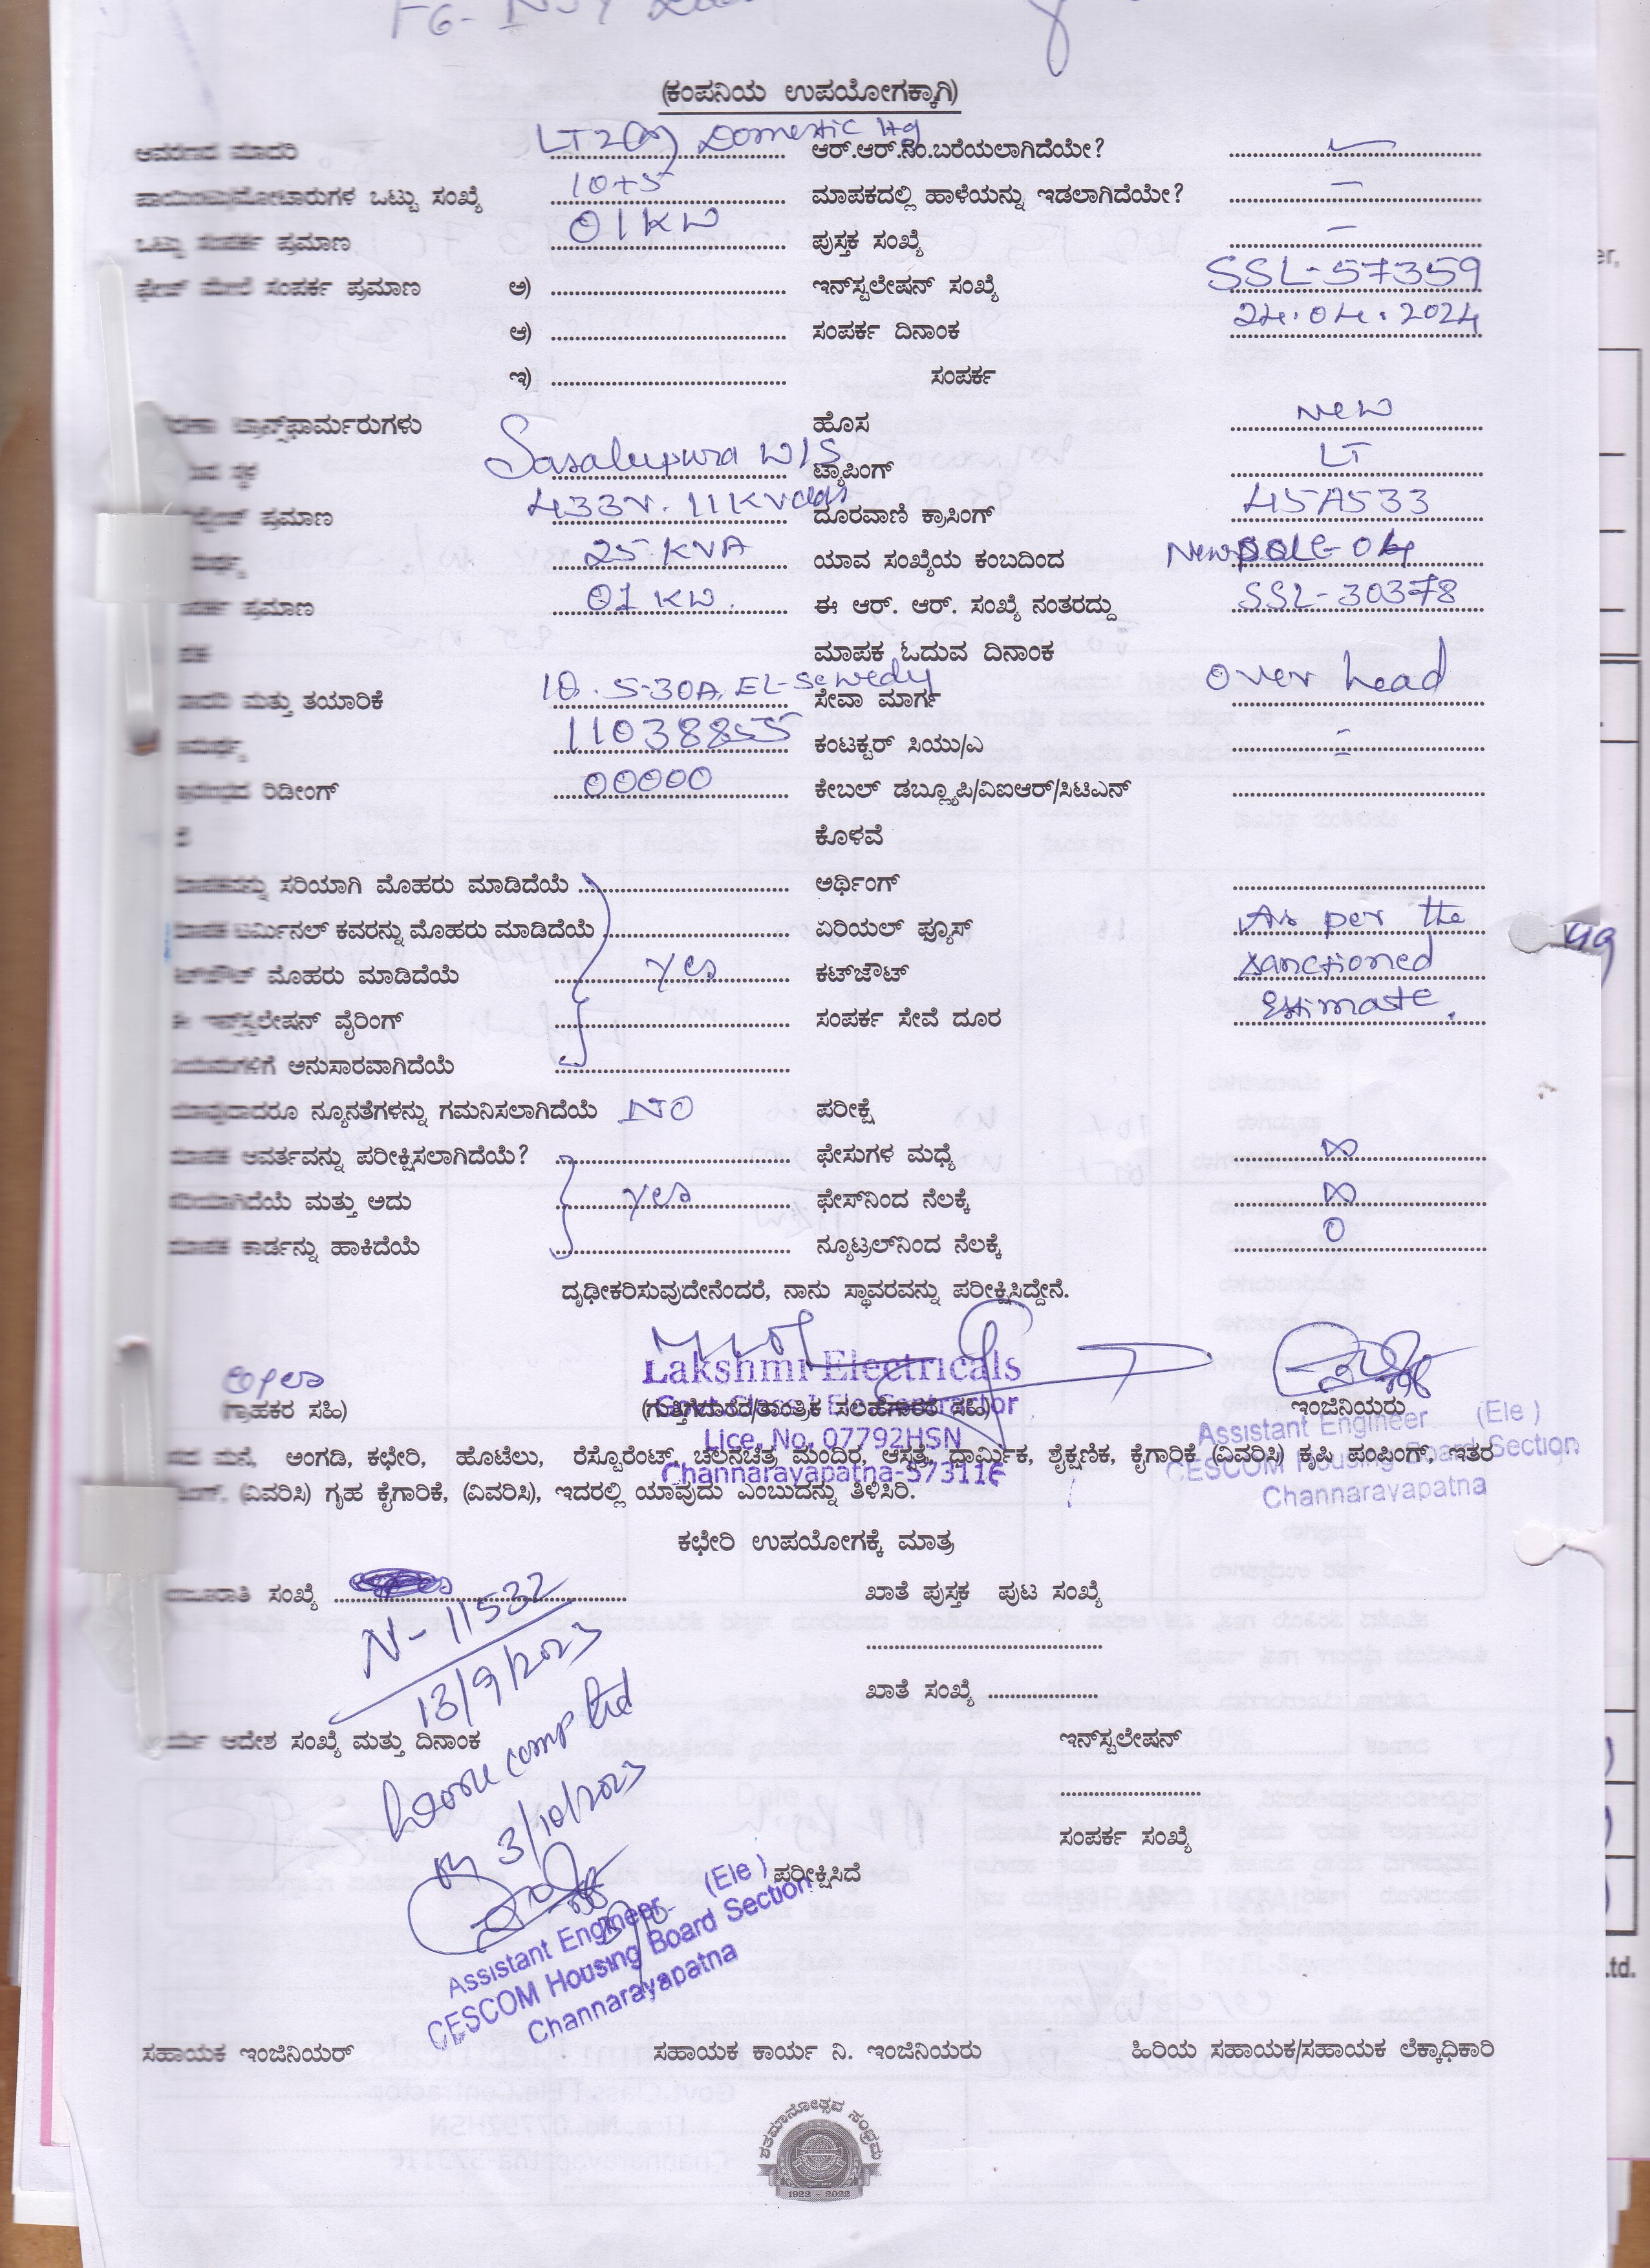 (ಕಂಪನಿಯ ಉಪಯೋಗಕ್ಕಾಗಿ)
ಆವರಣದ ಮಾದರಿ LT2(a) Domestic ltg ಆರ್.ಆರ್.ನಂ.ಬರೆಯಲಾಗಿದೆಯೇ?
ಒಟ್ಟು ಸಂಖ್ಯೆ 10+5 ಮಾಪಕದಲ್ಲಿ ಹಾಳೆಯನ್ನು ಇಡಲಾಗಿದೆಯೇ? —
ಒಟ್ಟು ಸಂಪರ್ಕ ಪ್ರಮಾಣ 01KW ಪುಸ್ತಕ ಸಂಖ್ಯೆ —
ಫೇಜ್ ಮೇಲೆ ಸಂಪರ್ಕ ಪ್ರಮಾಣ ಅ) ಇನ್‌ಸ್ಟಲೇಷನ್ ಸಂಖ್ಯೆ SSL-57359
ಆ) ಸಂಪರ್ಕ ದಿನಾಂಕ 24.04.2024
ಇ) ಸಂಪರ್ಕ
ಟ್ರಾನ್ಸ್‌ಫಾರ್ಮರುಗಳು ಹೊಸ New
ಸ್ಥಳ Sasalupura W/S ಟ್ಯಾಪಿಂಗ್ LT
ಪ್ರಮಾಣ 433V. 11KV ದೂರವಾಣಿ ಕ್ರಾಸಿಂಗ್ 45A533
25 KVA ಯಾವ ಸಂಖ್ಯೆಯ ಕಂಬದಿಂದ New pole-04
ಪ್ರಮಾಣ 01 KW. ಈ ಆರ್. ಆರ್. ಸಂಖ್ಯೆ ನಂತರದ್ದು SSL-30378
ಮಾಪಕ ಓದುವ ದಿನಾಂಕ
ಮತ್ತು ತಯಾರಿಕೆ 10. 5-30A, EL-Sewedy ಸೇವಾ ಮಾರ್ಗ over head
11038855 ಕಂಟಕ್ಟರ್ ಸಿಯು/ಎ
ರಿಡೀಂಗ್ 00000 ಕೇಬಲ್ ಡಬ್ಲ್ಯೂಪಿ/ವಿಐಆರ್/ಸಿಟಿಎನ್
ಕೊಳವೆ
ಸರಿಯಾಗಿ ಮೊಹರು ಮಾಡಿದೆಯೆ ಅರ್ಥಿಂಗ್
ಟರ್ಮಿನಲ್ ಕವರನ್ನು ಮೊಹರು ಮಾಡಿದೆಯೆ ಏರಿಯಲ್ ಫ್ಯೂಸ್ As per the
ಮೊಹರು ಮಾಡಿದೆಯೆ yes ಕಟ್‌ಔಟ್ sanctioned
ಈ ಇನ್‌ಸ್ಟಲೇಷನ್ ವೈರಿಂಗ್ ಸಂಪರ್ಕ ಸೇವೆ ದೂರ Estimate.
ನಿಯಮಗಳಿಗೆ ಅನುಸಾರವಾಗಿದೆಯೆ
ಯಾವುದಾದರೂ ನ್ಯೂನತೆಗಳನ್ನು ಗಮನಿಸಲಾಗಿದೆಯೆ NO ಪರೀಕ್ಷೆ
ಮಾಪಕ ಆವರ್ತವನ್ನು ಪರೀಕ್ಷಿಸಲಾಗಿದೆಯೇ? ಫೇಸುಗಳ ಮಧ್ಯೆ ∞
ಸರಿಯಾಗಿದೆಯೆ ಮತ್ತು ಅದು yes ಫೇಸ್‌ನಿಂದ ನೆಲಕ್ಕೆ ∞
ಮಾಪಕ ಕಾರ್ಡನ್ನು ಹಾಕಿದೆಯೆ ನ್ಯೂಟ್ರಲ್‌ನಿಂದ ನೆಲಕ್ಕೆ 0
ದೃಢೀಕರಿಸುವುದೇನೆಂದರೆ, ನಾನು ಸ್ಥಾವರವನ್ನು ಪರೀಕ್ಷಿಸಿದ್ದೇನೆ.
Lakshmi Electricals
(ಗ್ರಾಹಕರ ಸಹಿ) (ಗುತ್ತಿಗೆದಾರರ/ತಾಂತ್ರಿಕ ಸಲಹೆಗಾರರ ಸಹಿ) ಇಂಜಿನಿಯರು
Lice. No. 07792HSN
Channarayapatna-573116
Assistant Engineer (Ele)
CESCOM Housing Board Section
Channarayapatna
ಮನೆ, ಅಂಗಡಿ, ಕಛೇರಿ, ಹೊಟೆಲು, ರೆಸ್ಟೊರೆಂಟ್, ಚಲನಚಿತ್ರ ಮಂದಿರ, ಆಸ್ಪತ್ರೆ, ಧಾರ್ಮಿಕ, ಶೈಕ್ಷಣಿಕ, ಕೈಗಾರಿಕೆ (ವಿವರಿಸಿ) ಕೃಷಿ ಪಂಪಿಂಗ್, ಇತರ
(ವಿವರಿಸಿ) ಗೃಹ ಕೈಗಾರಿಕೆ, (ವಿವರಿಸಿ), ಇದರಲ್ಲಿ ಯಾವುದು ಎಂಬುದನ್ನು ತಿಳಿಸಿರಿ.
ಕಛೇರಿ ಉಪಯೋಗಕ್ಕೆ ಮಾತ್ರ
ಸಂಖ್ಯೆ ಖಾತೆ ಪುಸ್ತಕ ಪುಟ ಸಂಖ್ಯೆ
N-11532
13/9/2023
ಖಾತೆ ಸಂಖ್ಯೆ
ಆದೇಶ ಸಂಖ್ಯೆ ಮತ್ತು ದಿನಾಂಕ ಇನ್‌ಸ್ಟಲೇಷನ್
work completed
on 3/10/2023
ಸಂಪರ್ಕ ಸಂಖ್ಯೆ
ಪರೀಕ್ಷಿಸಿದೆ
Assistant Engineer (Ele)
CESCOM Housing Board Section
Channarayapatna
ಸಹಾಯಕ ಇಂಜಿನಿಯರ್ ಸಹಾಯಕ ಕಾರ್ಯ ನಿ. ಇಂಜಿನಿಯರು ಹಿರಿಯ ಸಹಾಯಕ/ಸಹಾಯಕ ಲೆಕ್ಕಾಧಿಕಾರಿ
ಶತಮಾನೋತ್ಸವ ಸಂಭ್ರಮ
1922 - 2022